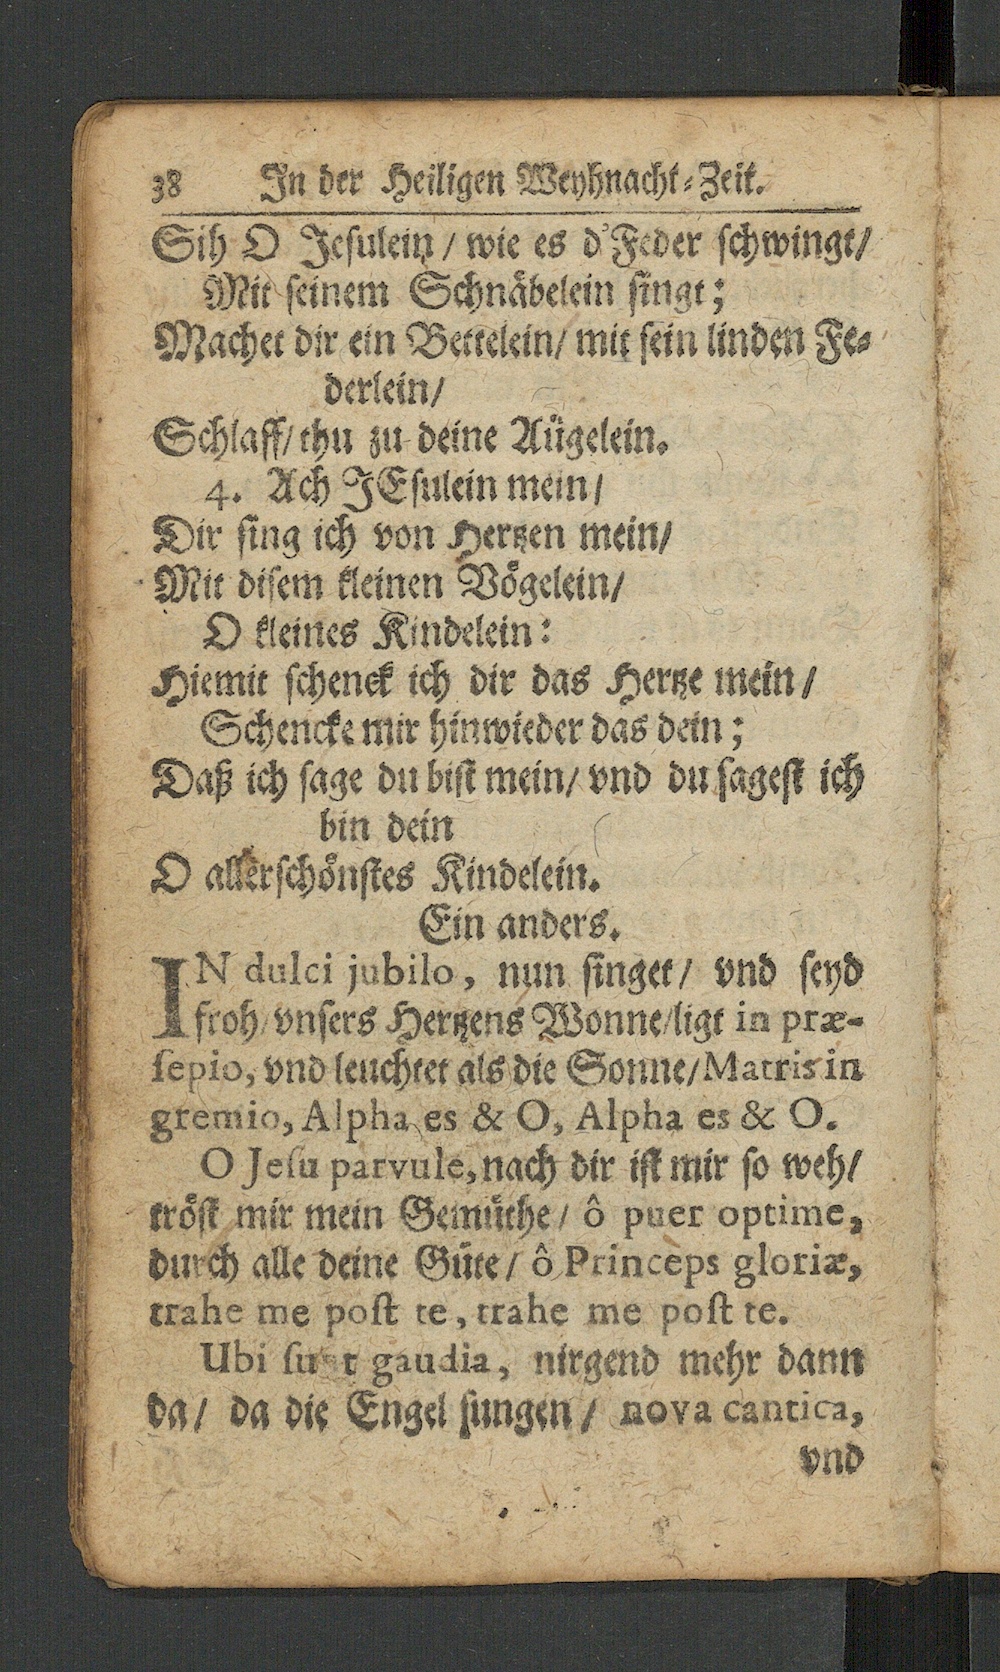 38 In der Heiligen Weyhnacht-Zeit.
Sih O Jesulein / wie es d'Feder schwingt /
Mit seinem Schnäbelein singt;
Machet dir ein Bettelein / mit sein linden Fe-
derlein /
Schlaff / thu zu deine Aügelein.
4. Ach JEsulein mein /
Dir sing ich von Hertzen mein /
Mit disem kleinen Vögelein /
O kleines Kindelein:
Hiemit schenck ich dir das Hertze mein /
Schencke mir hinwieder das dein;
Daß ich sage du bist mein / vnd du sagest ich
bin dein
O allerschönstes Kindelein.
Ein anders.
IN dulci jubilo, nun singet / vnd seyd
froh / vnsers Hertzens Wonne / ligt in præ-
sepio, vnd leuchtet als die Sonne / Matris in
gremio, Alpha es & O, Alpha es & O.
O Jesu parvule, nach dir ist mir so weh /
tröst mir mein Gemüthe / ô puer optime,
durch alle deine Güte / ô Princeps gloriæ,
trahe me post te, trahe me post te.
Ubi sunt gaudia, nirgend mehr dann
da / da die Engel sungen / nova cantica,
vnd